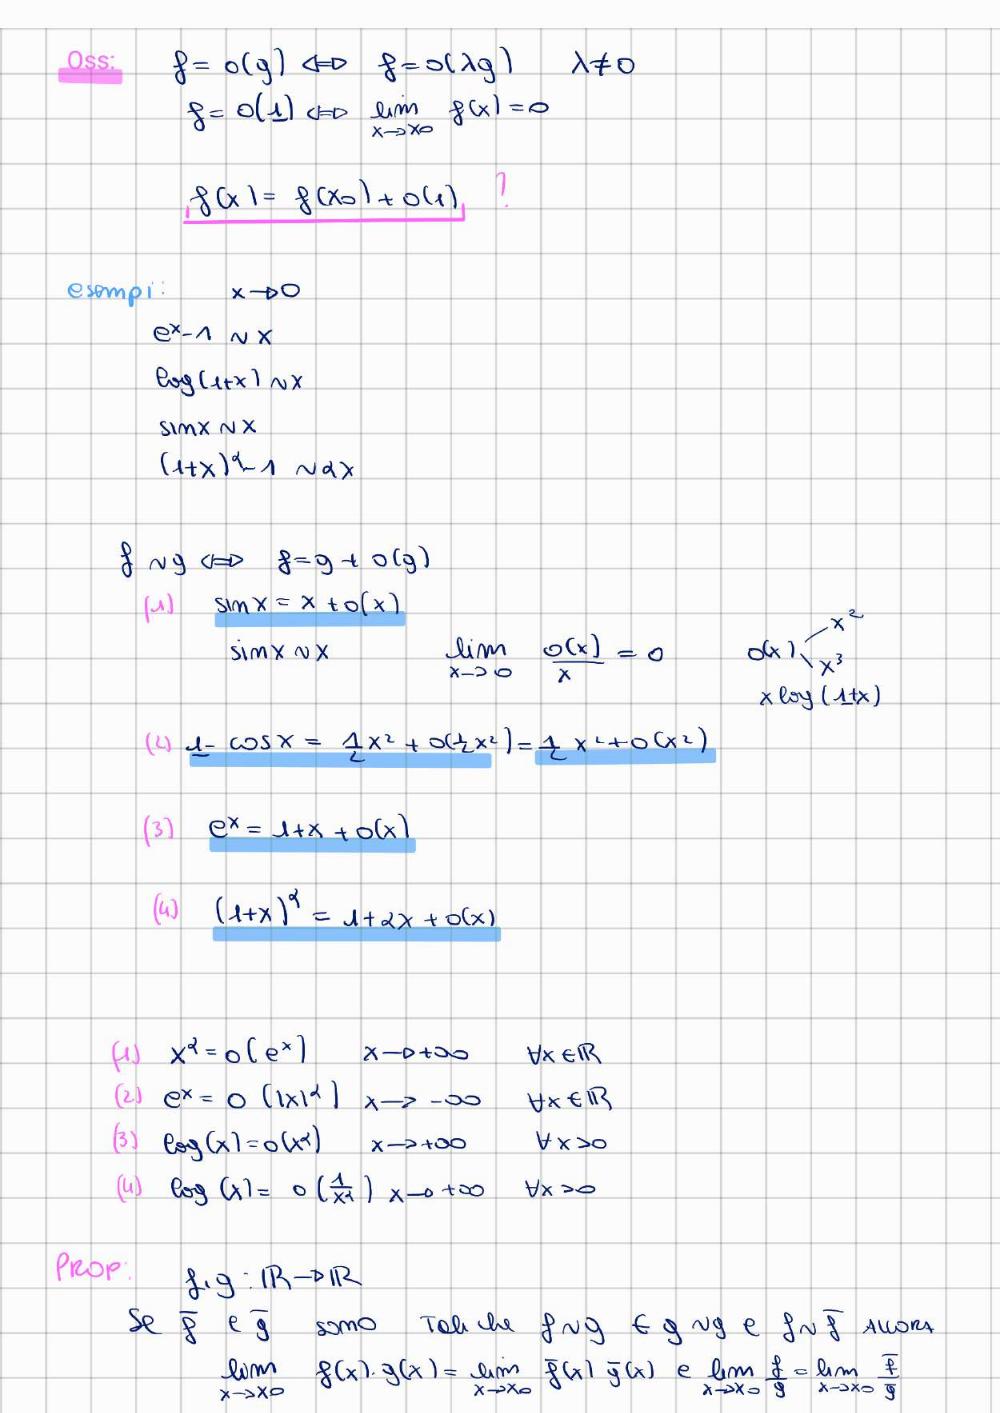 Oss: f = o(g) ⇔ f = o(λg) λ≠0
f = o(1) ⇔ lim x→x0 f(x) = 0
f(x) = f(x0) + o(1) ?
esempi: x→0
e^x - 1 ~ x
log(1+x) ~ x
sinx ~ x
(1+x)^α - 1 ~ αx
f ~ g ⇔ f = g + o(g)
(1) sinx = x + o(x)
sinx ~ x lim x→0 o(x)/x = 0 o(x) x^2 x^3
x log(1+x)
(2) 1 - cosx = 1/2 x^2 + o(1/2 x^2) = 1/2 x^2 + o(x^2)
(3) e^x = 1+x + o(x)
(4) (1+x)^α = 1+αx + o(x)
(1) x^α = o(e^x) x→+∞ ∀x∈ℝ
(2) e^x = o(|x|^α) x→-∞ ∀x∈ℝ
(3) log(x) = o(x^α) x→+∞ ∀x>0
(4) log(x) = o(1/x^α) x→+∞ ∀x>0
PROP: f,g : ℝ→ℝ
Se f̄ e ḡ sono Tali che f~g ∈ g~g e f~f̄ ALLORA
lim x→x0 f(x)·g(x) = lim x→x0 f̄(x) ḡ(x) e lim x→x0 f/g = lim x→x0 f̄/ḡ